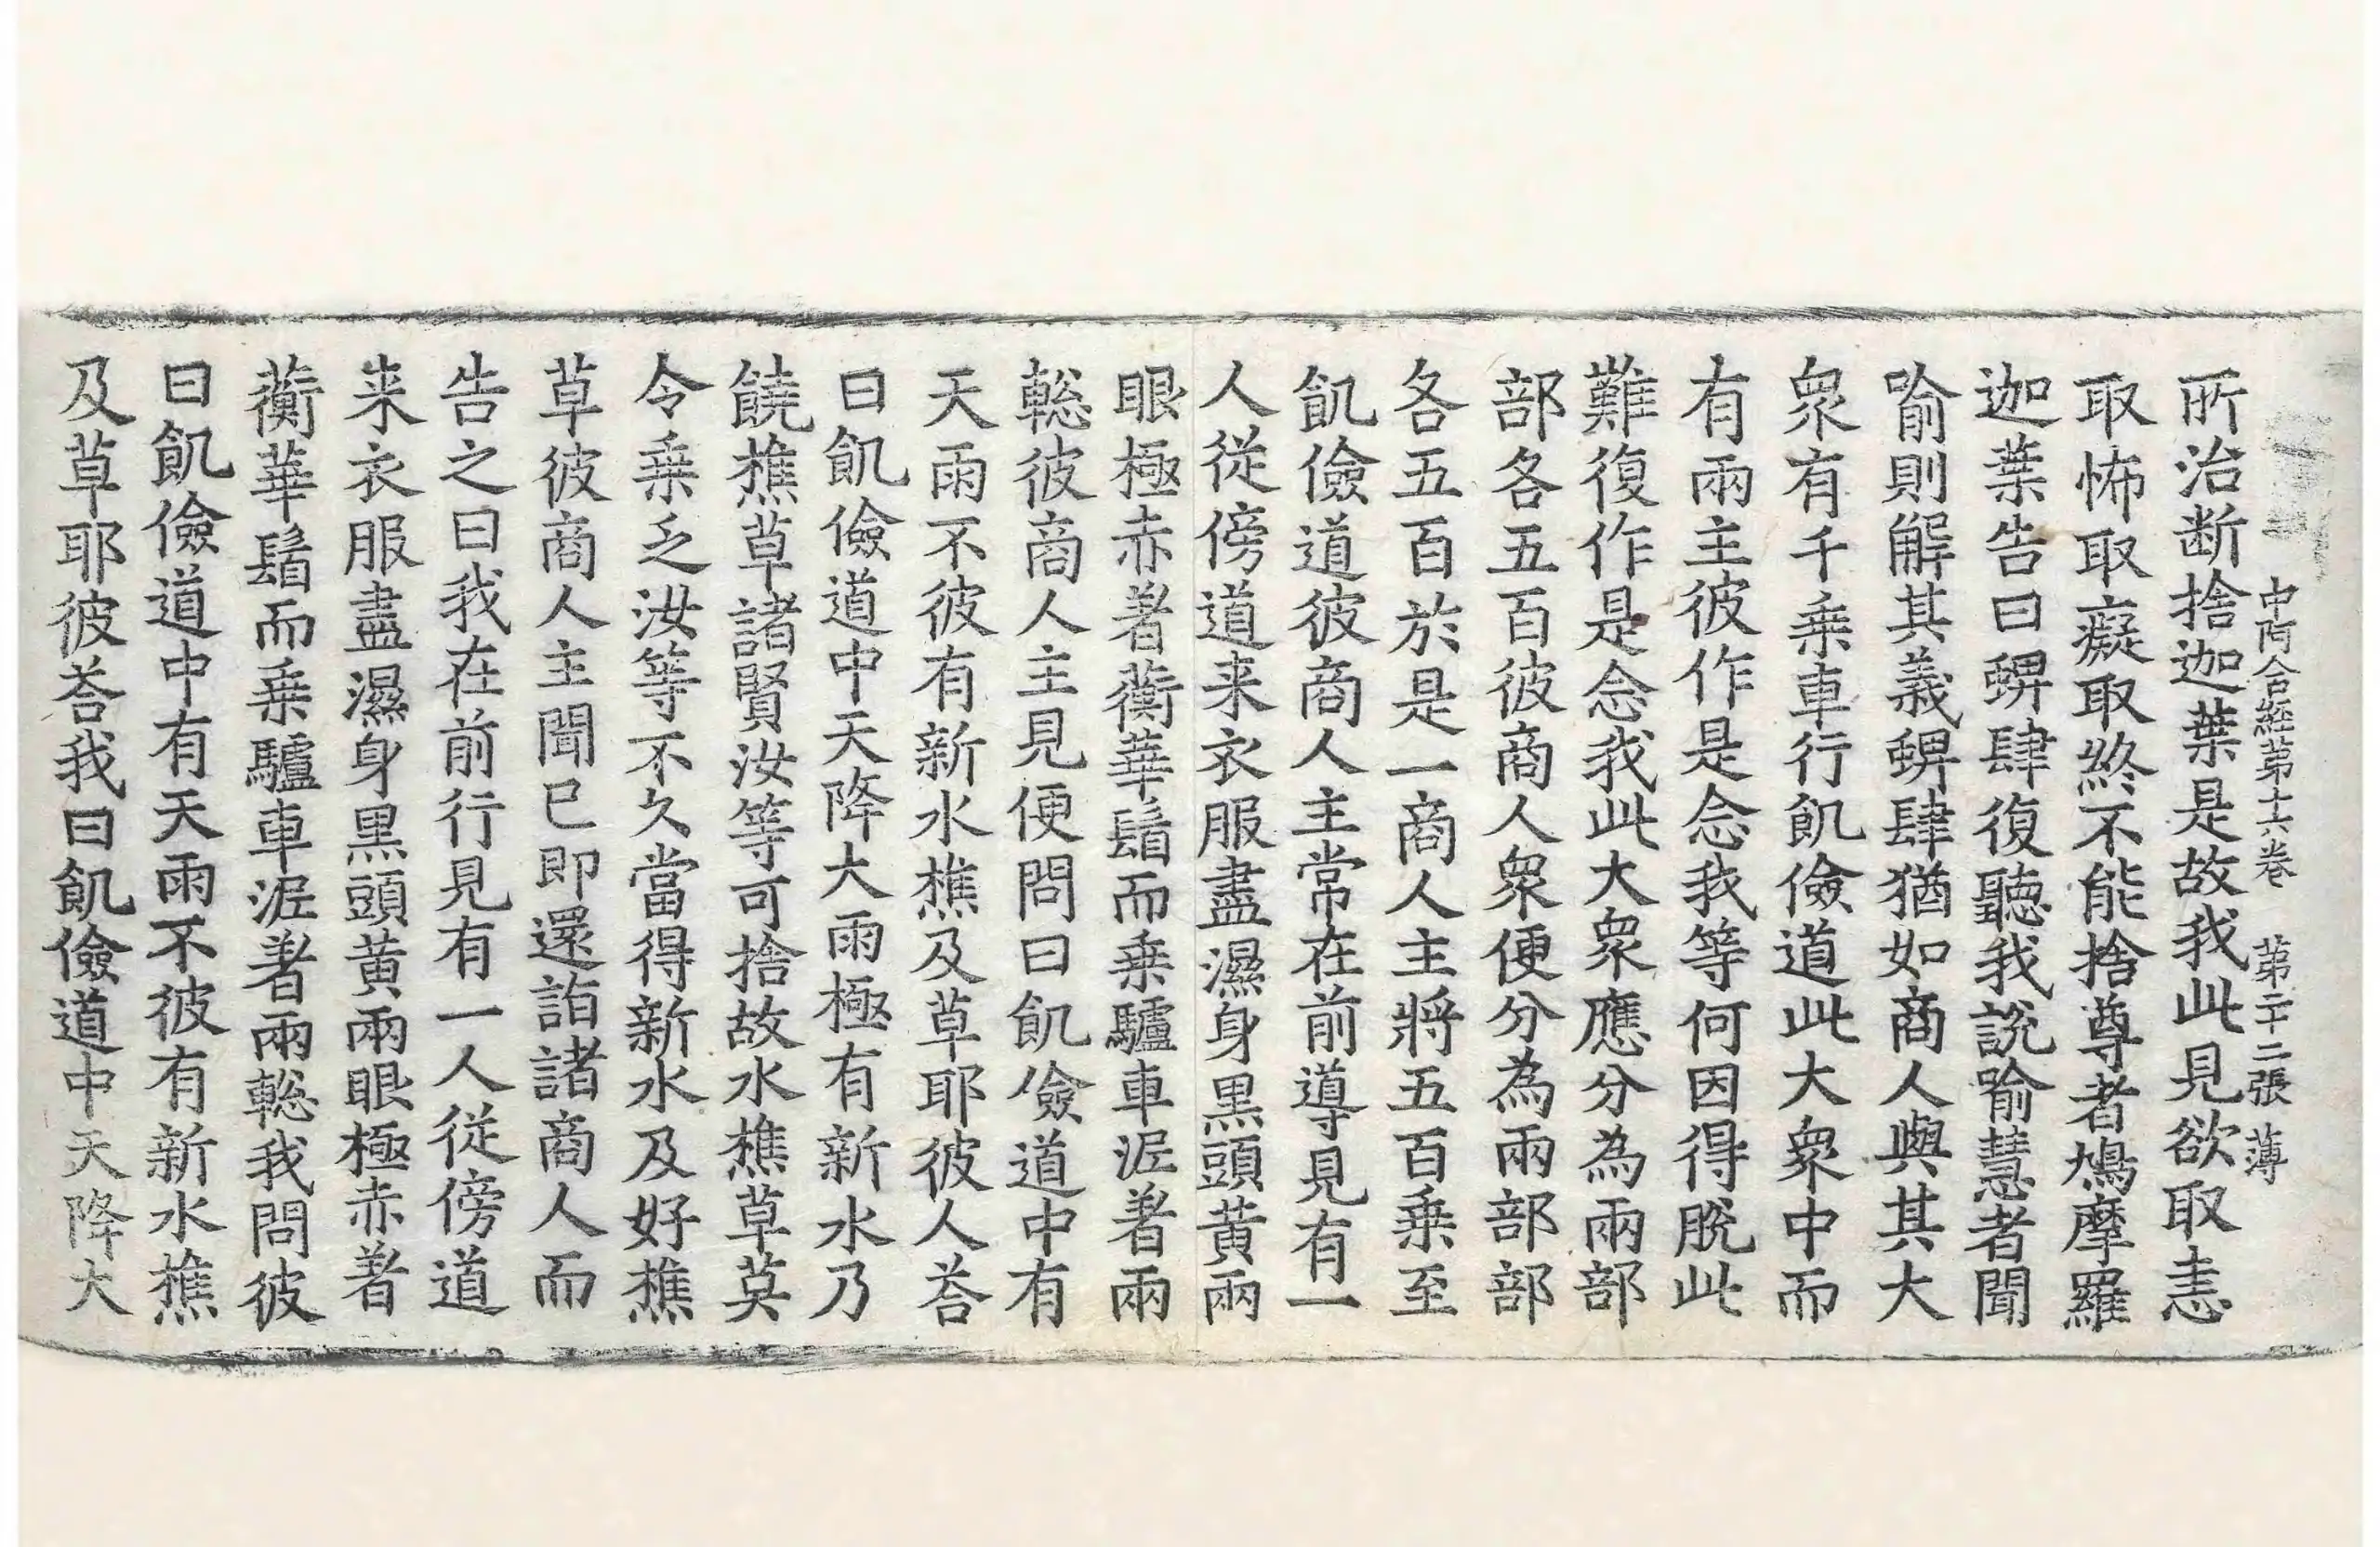 中阿含經第十六卷　第二十二張　薄
所治断捨迦葉是故我此見欲取恚
取怖取癡取終不能捨尊者鳩摩羅
迦葉告曰蜱肆復聽我説喻慧者聞
喻則解其義蜱肆猶如商人與其大
衆有千乗車行飢儉道此大衆中而
有兩主彼作是念我等何因得脫此
難復作是念我此大衆應分為兩部
部各五百彼商人衆便分為兩部部
各五百於是一商人主將五百乗至
飢儉道彼商人主常在前導見有一
人從傍道来衣服盡濕身黒頭黄兩
眼極赤著蘅華鬘而乗驢車泥著兩
䡯彼商人主見便問曰飢儉道中有
天雨不彼有新水樵及草耶彼人荅
曰飢儉道中天降大雨極有新水乃
饒樵草諸賢汝等可捨故水樵草莫
令乗乏汝等不久當得新水及好樵
草彼商人主聞已即還詣諸商人而
告之曰我在前行見有一人從傍道
来衣服盡濕身黒頭黄兩眼極赤著
蘅華鬘而乗驢車泥著兩䡯我問彼
曰飢儉道中有天雨不彼有新水樵
及草耶彼荅我曰飢儉道中天降大